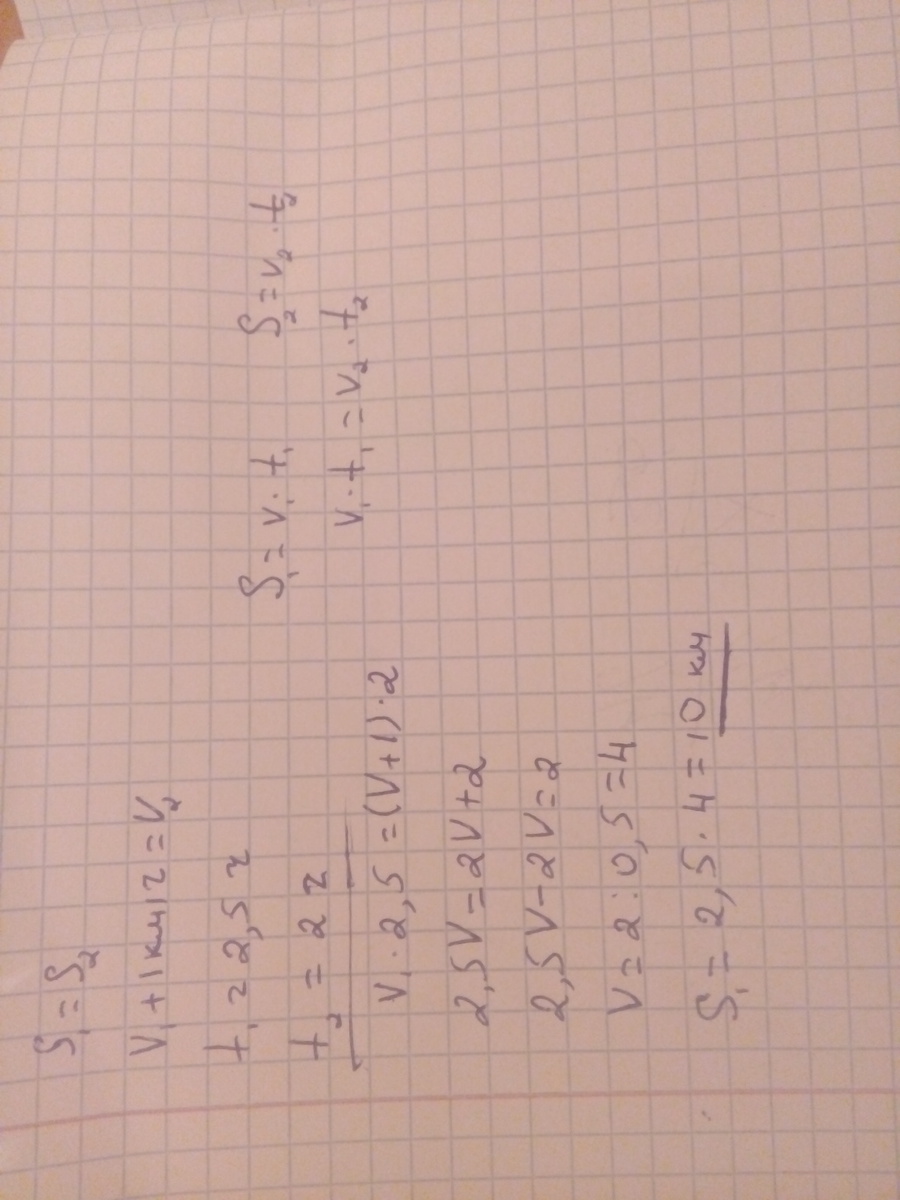 S₁ = S₂
V₁ + 1 км/г = V₂
t₁ = 2,5 г
t₂ = 2 г
S₁ = V₁ · t₁ S₂ = V₂ · t₂
V₁ · t₁ = V₂ · t₂
V₁ · 2,5 = (V+1) · 2
2,5V = 2V + 2
2,5V - 2V = 2
V = 2 : 0,5 = 4
S₁ = 2,5 · 4 = 10 км